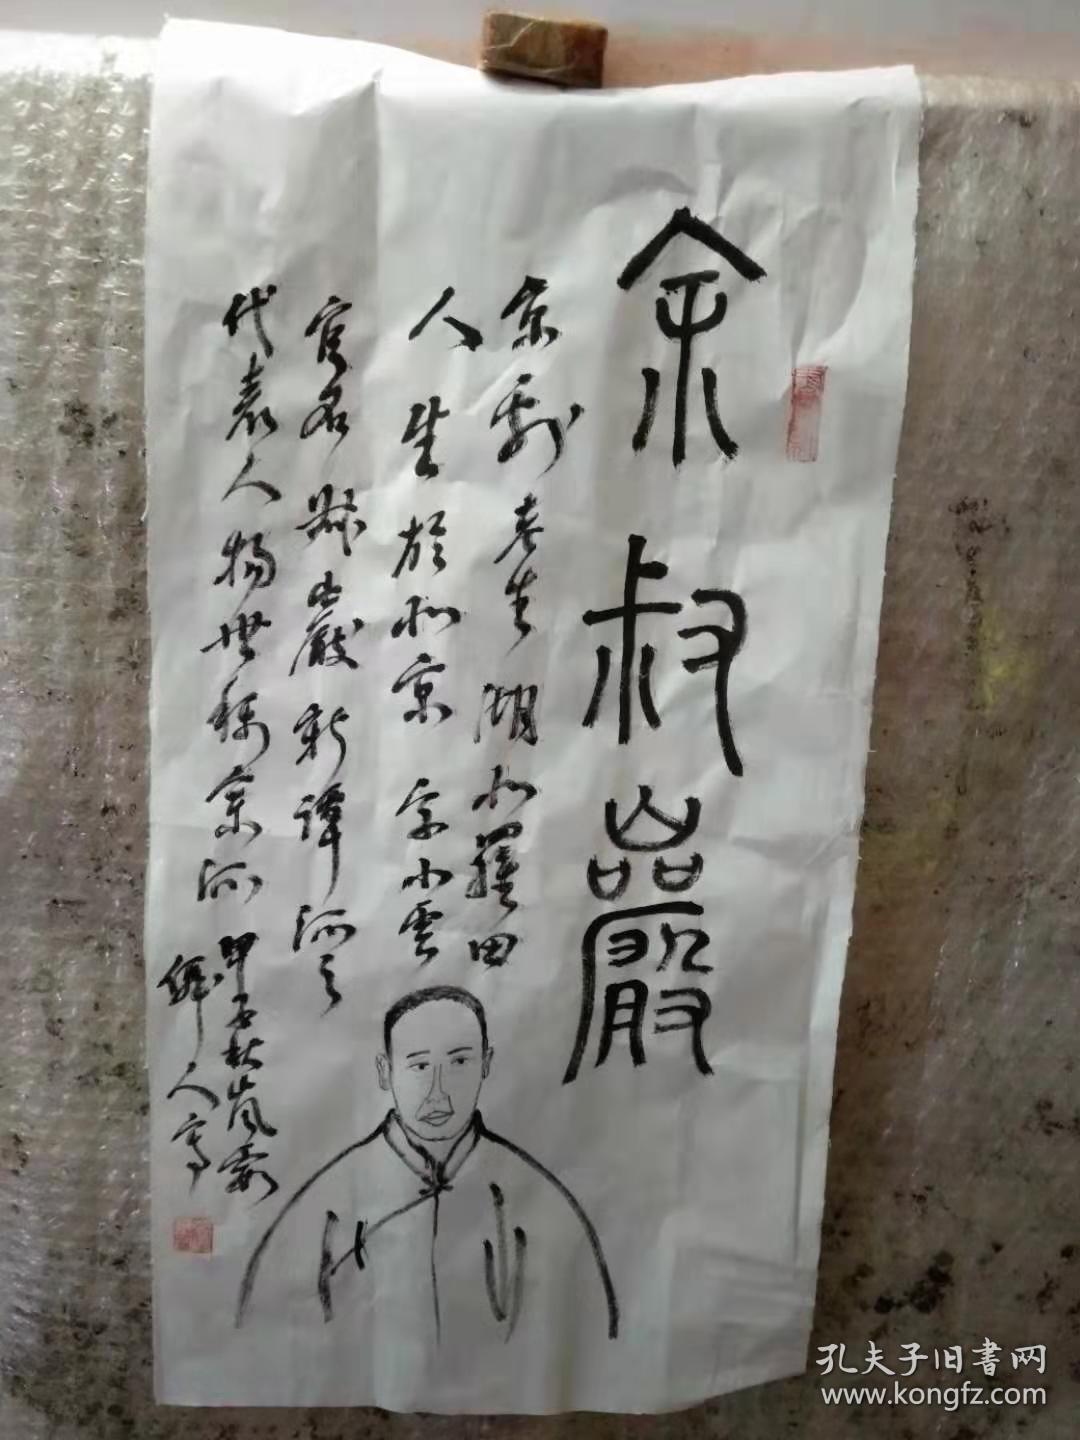 余叔巖
京劇老生湖北羅田
人生於北京字小雲
官名叔巖新譚派之
代表人物世稱余派
甲子秋嵐霧
輝人寫
孔夫子旧書网
www.kongfz.com